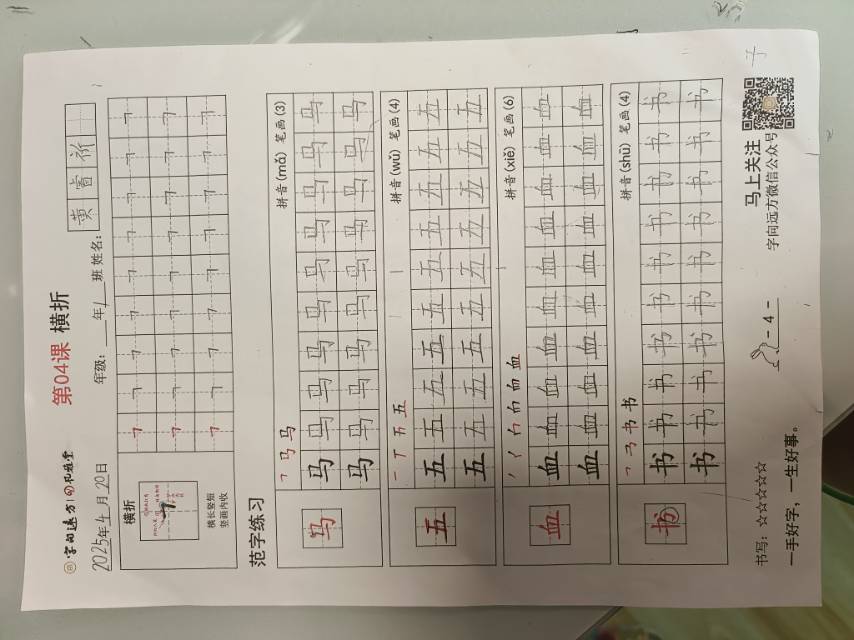 字向远方 书法课堂
第04课 横折
2025年4月20日 年级：年1班 姓名：黄睿祈
横折
横长竖短
竖画内收
范字练习
马 拼音(mǎ) 笔画(3)
马 马 马 马 马 马 马 马 马 马
马 马 马 马 马 马 马 马 马 马
五 拼音(wǔ) 笔画(4)
五 五 五 五 五 五 五 五 五 五
五 五 五 五 五 五 五 五 五 五
血 拼音(xiě) 笔画(6)
血 血 血 血 血 血 血 血 血 血
血 血 血 血 血 血 血 血 血 血
书 拼音(shū) 笔画(4)
书 书 书 书 书 书 书 书 书 书
书 书 书 书 书 书 书 书 书 书
书写：☆☆☆☆☆
一手好字，一生好事。
- 4 -
马上关注
字向远方微信公众号